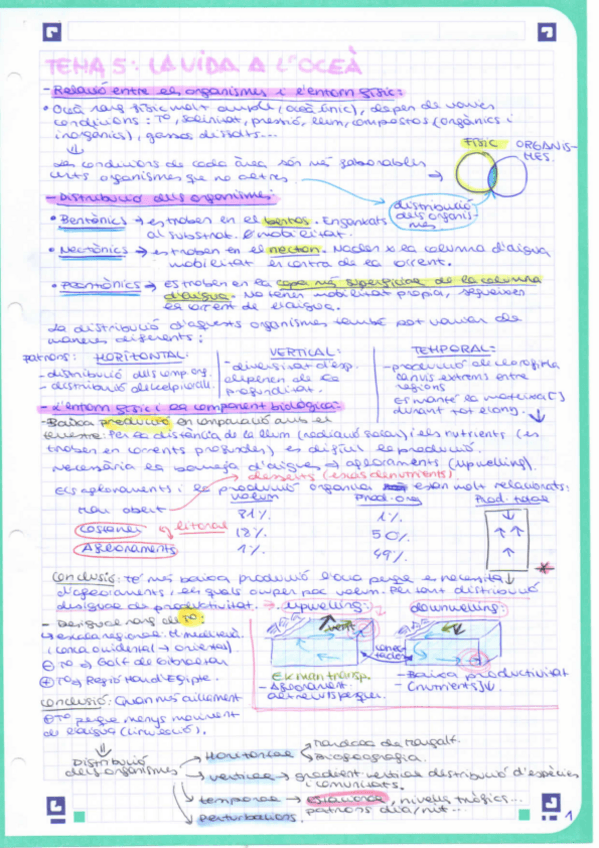 TEMA 5: LA VIDA A L'OCEÀ
- Relació entre els organismes i l'entorn físic:
• Oceà rang físic molt ampli (oceà únic), depen de varies
condicions: Tº, salinitat, pressió, llum, compostos (orgànics i
inorgànics), gasos dissolts...
Les condicions de cada àrea són més favorables
uns organismes que no altres
FÍSIC ORGANIS-
MES.
distribució
dels organis-
mes
- Distribució dels organismes:
• Bentònics → es troben en el bentos. Enganxats
al substrat. mobilitat.
• Nectònics → es troben en el necton. Neden x la columna d'aigua
mobilitat en contra de la corrent.
• Planctònics → es troben en la capa més superficial de la columna
d'aigua. No tenen mobilitat propia, segueixen
la corrent de l'aigua.
La distribució d'aquests organismes també pot variar de
maneres diferents:
Patrons: HORITZONTAL: VERTICAL: TEMPORAL:
- distribució dels
- distribució
- diversitat d'esp.
depenen de la
profunditat.
- producció de clorofil·la
canvis extrems entre
regions
Es manté la mateixa []
durant tot l'any.
- L'entorn físic i la component biològica:
- Baixa producció en comparació amb el
terrestre: Per la distància de la llum (radiació solar) i els nutrients (es
troben en corrents profundes) es difícil la producció.
Necessària la barreja d'aigües → afloraments (upwelling).
deserts (
Els afloraments i la producció orgànica estan molt relacionats:
volum Prod. org Prod. total
Mar obert 81% 1%
Costaner → litoral 18% 50%
Afloraments 1% 49%
Conclusió: té més baixa producció l'oceà perque es necessita
d'afloraments i els quals ocupen poc volum. Per tant distribució
desigual de productivitat. → upwelling: downwelling:
- Desigual rang de Tº:
↳ escala regional: El mediterrà
(zona occidental → oriental)
⊖ Tº → Golf de Gibraltar
⊕ Tº → Regió Nord d'Egipte.
vent
Ekman transp.
- Aflorament
altres aigües.
- Baixa productivitat
- (nutrients)↓.
Conclusió: Quan més aillament
⊕ Tº perque menys moviment
de l'aigua (circulació).
Distribució
dels organismes
→ Horitzontal → Biogeografia.
→ vertical → gradient vertical distribució d'espècies
i comunitats.
→ temporal → estacional, nivells tròfics...
patrons dia/nit...
→ Perturbacions.
1